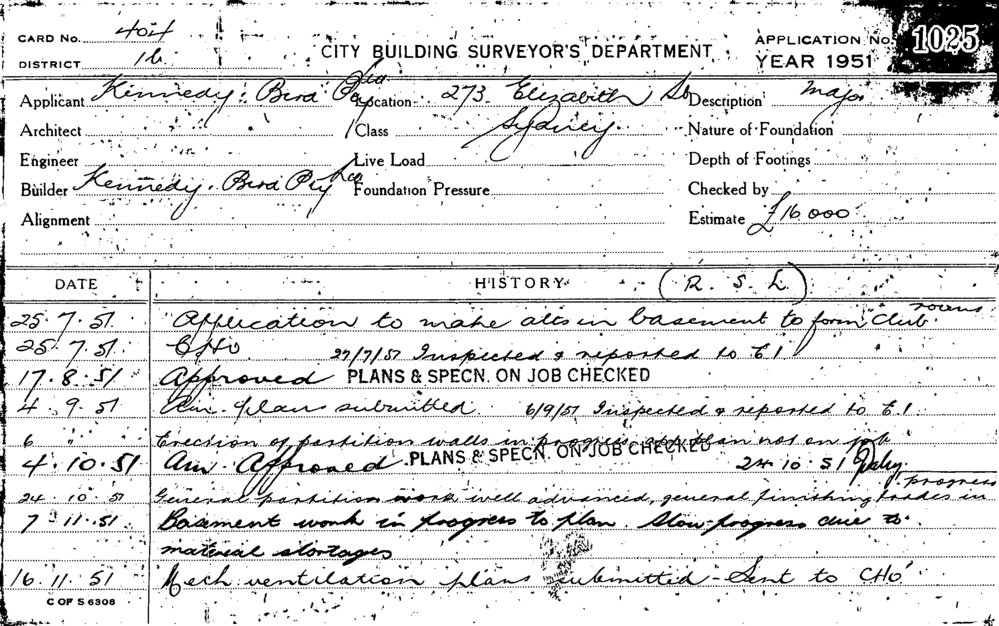 CARD No. 404
DISTRICT 16
CITY BUILDING SURVEYOR'S DEPARTMENT
APPLICATION No. 1025
YEAR 1951
Applicant Kennedy. Bird Pty Ltd Location 273 Elizabeth St Description major
Architect Class Sydney. Nature of Foundation
Engineer Live Load Depth of Footings
Builder Kennedy. Bird Pty Ltd Foundation Pressure Checked by
Alignment Estimate £16 000
DATE HISTORY (R. S. L)
25.7.51. Application to make alts in basement to form Club rooms
25.7.51. CHO 27/7/51 Inspected & reported to E.1
17.8.51 Approved PLANS & SPECN. ON JOB CHECKED
4.9.51 Am. plans submitted. 6/9/51 Inspected & reported to E.1.
6 " Erection of partition walls in progress, plan not on job
4.10.51 Am. Approved PLANS & SPECN. ON JOB CHECKED 24.10.51
24 10 51 General partition work well advanced, general finishing trades in progress
7-11.51. Basement work in progress to plan. Slow progress due to
material shortages
16.11.51 Mech ventilation plans submitted - Sent to CHO
C OF S 6306